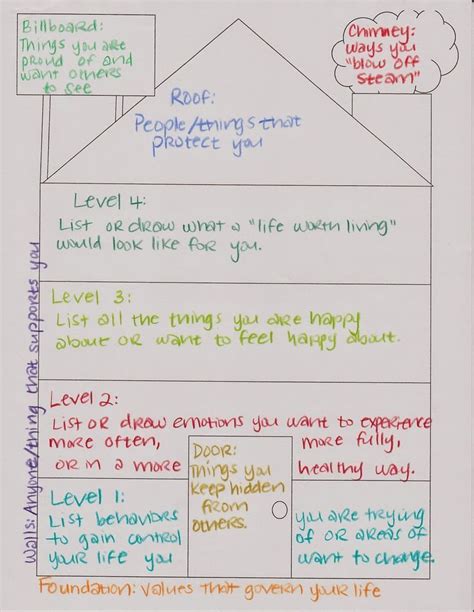 Billboard:
Things you are
proud of and
want others
to see
Chimney:
ways you
"blow off
steam"
Roof:
People/things that
protect you
Level 4:
List or draw what a "life worth living"
would look like for you.
Walls: Anyone/thing that supports you
Level 3:
List all the things you are happy
about or want to feel happy about.
Level 2:
List or draw emotions you want to experience
more often, more fully,
or in a more healthy way.
Door:
Things you
keep hidden
from
others.
Level 1:
List behaviors you are trying
to gain control of or areas of
your life you want to change.
Foundation: values that govern your life